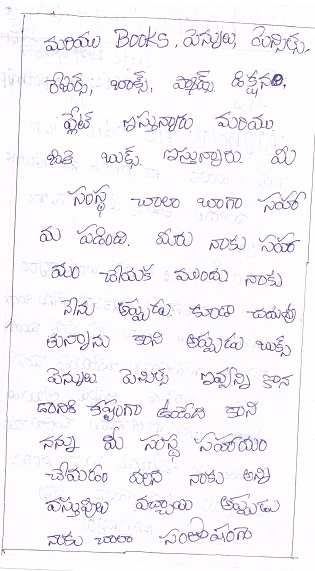 మరియు BOOKS, పెన్నులు, పెన్సిల్సు,
బాక్స్, ప్యాడ్సు డిక్షనరి,
ప్లేట్ ఇస్తున్నారు మరియు
బుక్స్ ఇస్తున్నారు. మీ
సంస్థ చాలా బాగా సహా
య పడింది. మీరు నాకు సహా
యం చేయక ముందు నాకు
నేను అప్పుడు కూడా చదువు
తున్నాను కాని అప్పుడు బుక్స్
పెన్నులు పెన్సిల్సు ఇవ్వన్ని కొన
డానికి కష్టంగా ఉండేది కాని
నన్ను మీ సంస్థ సహాయం
చేయడం వలన నాకు అన్ని
వస్తువులు వచ్చాయి అప్పుడు
నాకు చాలా సంతోషంగా